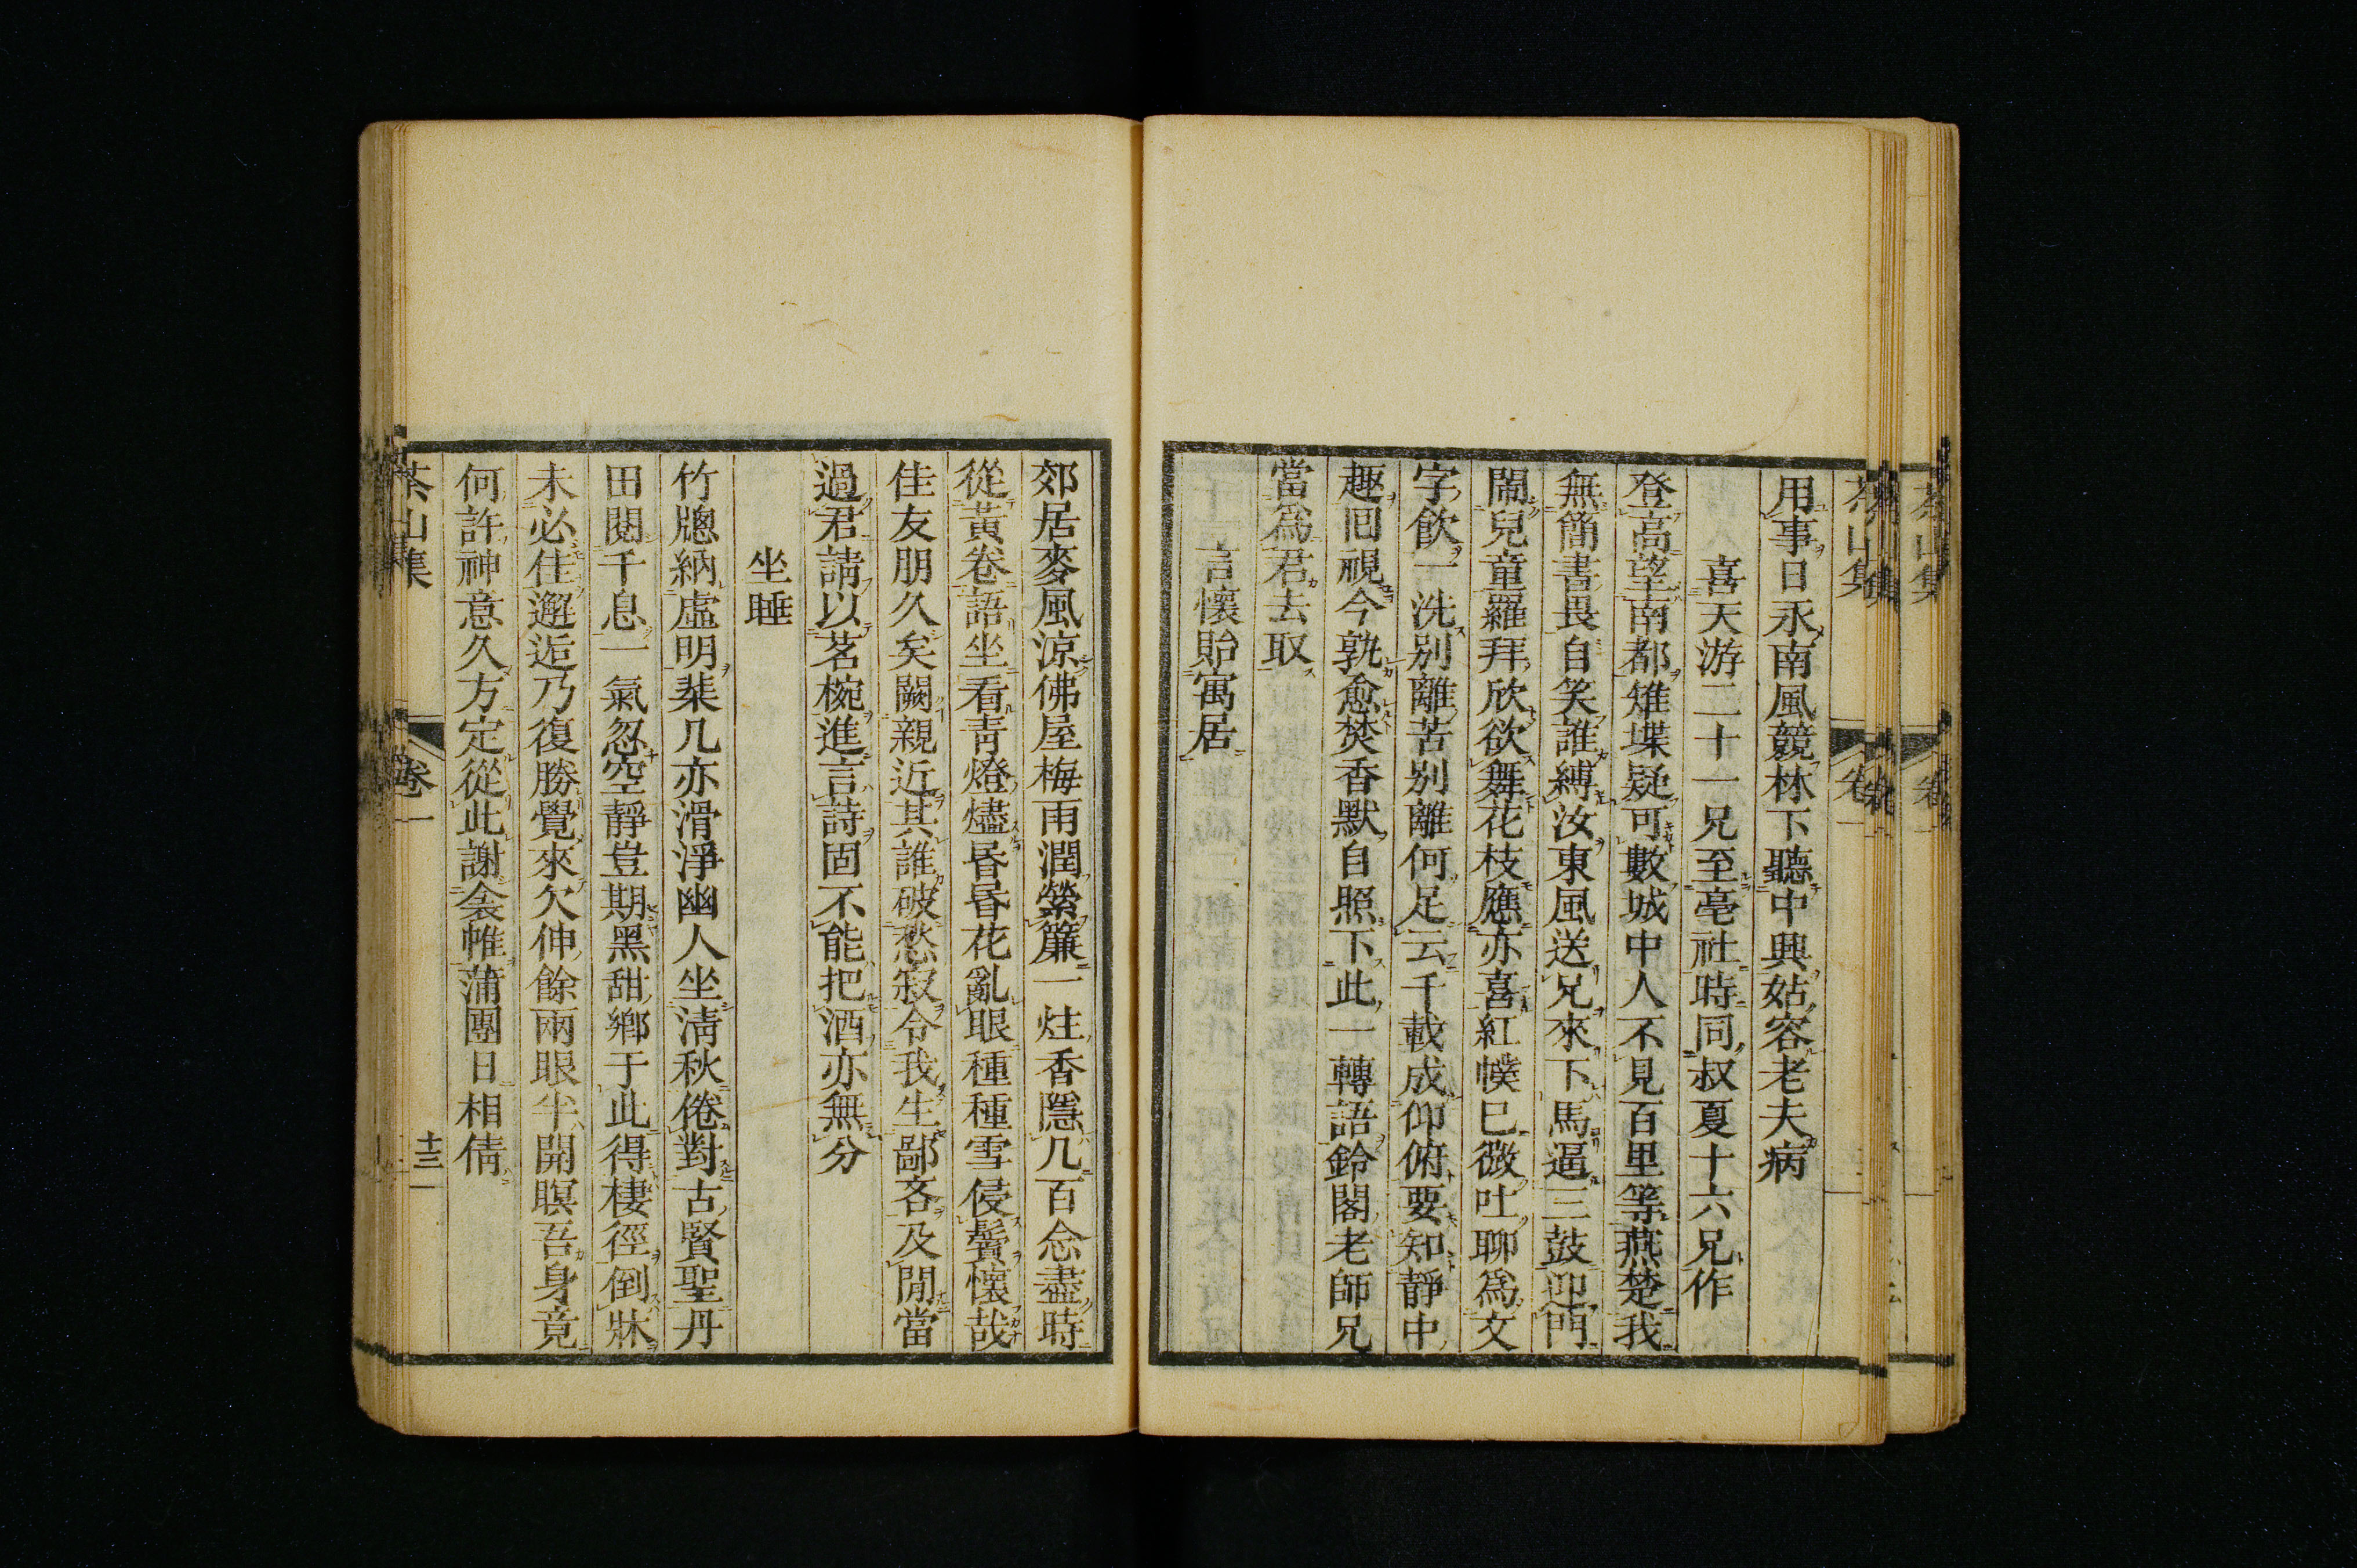 用事日永南風競林下聽中興姑容老夫病
喜天游二十一兄至亳社時同叔夏十六兄作
登高望南都雉堞疑可數城中人不見百里等燕楚我
無簡書畏自笑誰縛汝東風送兄來下馬逼三鼓迎門
鬧兒童羅拜欣欲舞花枝應亦喜紅幞巳微吐聊爲文
字飲一洗別離苦別離何足云千載成仰俯要知靜中
趣囘視今孰愈焚香默自照下此一轉語鈴閣老師兄
當爲君去取
言懷貽寓居
郊居麥風涼佛屋梅雨潤縈簾一炷香隱几百念盡時
從黃卷語坐看靑燈燼昏昏花亂眼種種雪侵鬢懷哉
佳友朋久矣闕親近其誰破愁寂令我生鄙吝及閒當
過君請以茗椀進言詩固不能把酒亦無分
坐睡
竹牕納虛明棐几亦滑淨幽人坐淸秋倦對古賢聖丹
田閱千息一氣忽空靜豈期黑甜鄉于此得棲徑倒牀
未必佳邂逅乃復勝覺來欠伸餘兩眼半開瞑吾身竟
何許神意久方定從此謝衾帷蒲團日相倩
茶山集 卷一 十三